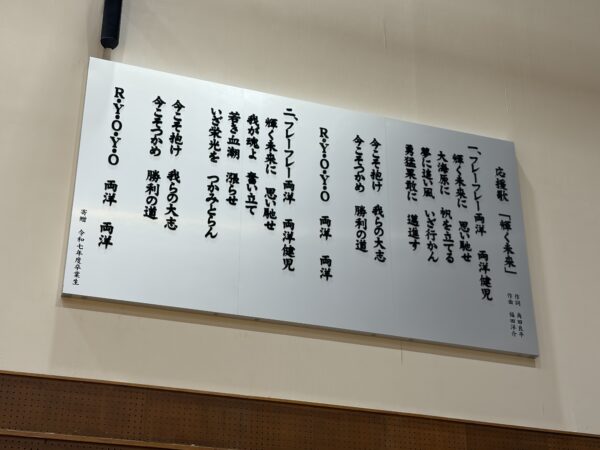 応援歌 「輝く未来」
作詞 角田良平
作曲 福田洋介
一、フレーフレー両洋 両洋健児
輝く未来に 思い馳せ
大海原に 帆を立てる
夢に追い風 いざ行かん
勇猛果敢に 邁進す
今こそ抱け 我らの大志
今こそつかめ 勝利の道
R・Y・O・Y・O 両洋 両洋
二、フレーフレー両洋 両洋健児
輝く未来に 思い馳せ
我が魂よ 奮い立て
若き血潮 漲らせ
いざ栄光を つかみとらん
今こそ抱け 我らの大志
今こそつかめ 勝利の道
R・Y・O・Y・O 両洋 両洋
寄贈 令和七年度卒業生